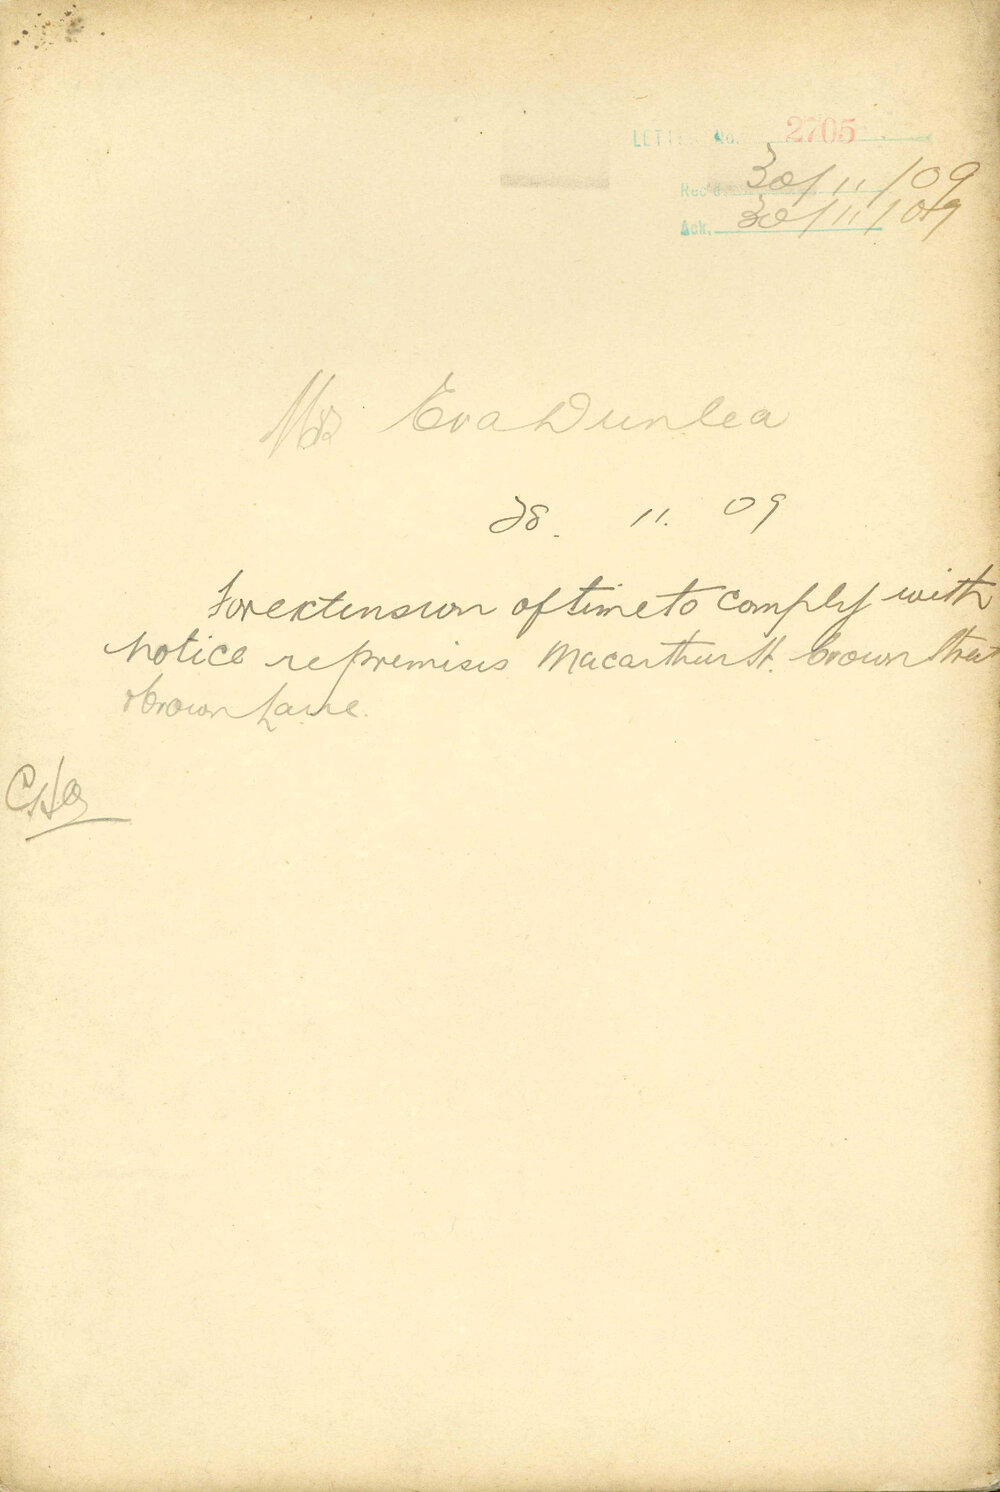 LETTER No. 2705
Rec'd. 30/11/09
Ack. 30/11/09
Mrs Eva Dunlea
28. 11. 09
For extension of time to comply with
notice re premises Macarthur St. Crown Street
& Crown Lane.